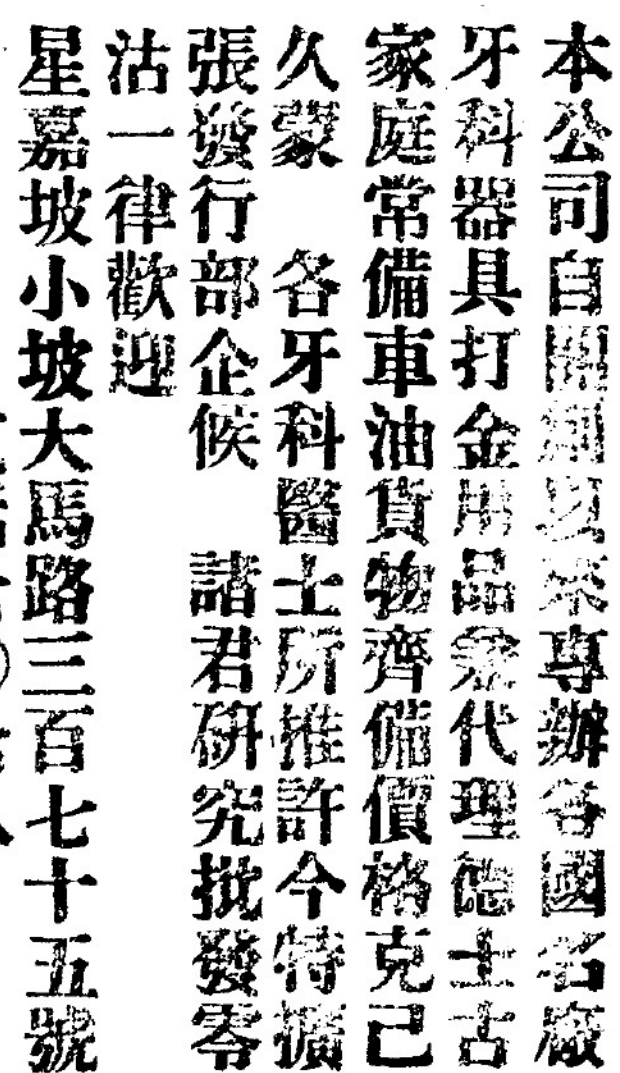 本公司自開創以來專辦各國名廠
牙科器具打金用品兼代理德士古
家庭常備車油貨物齊備價格克己
久蒙 各牙科醫士所推許今特擴
張發行部企候 諸君研究批發零
沽一律歡迎
星嘉坡小坡大馬路三百七十五號